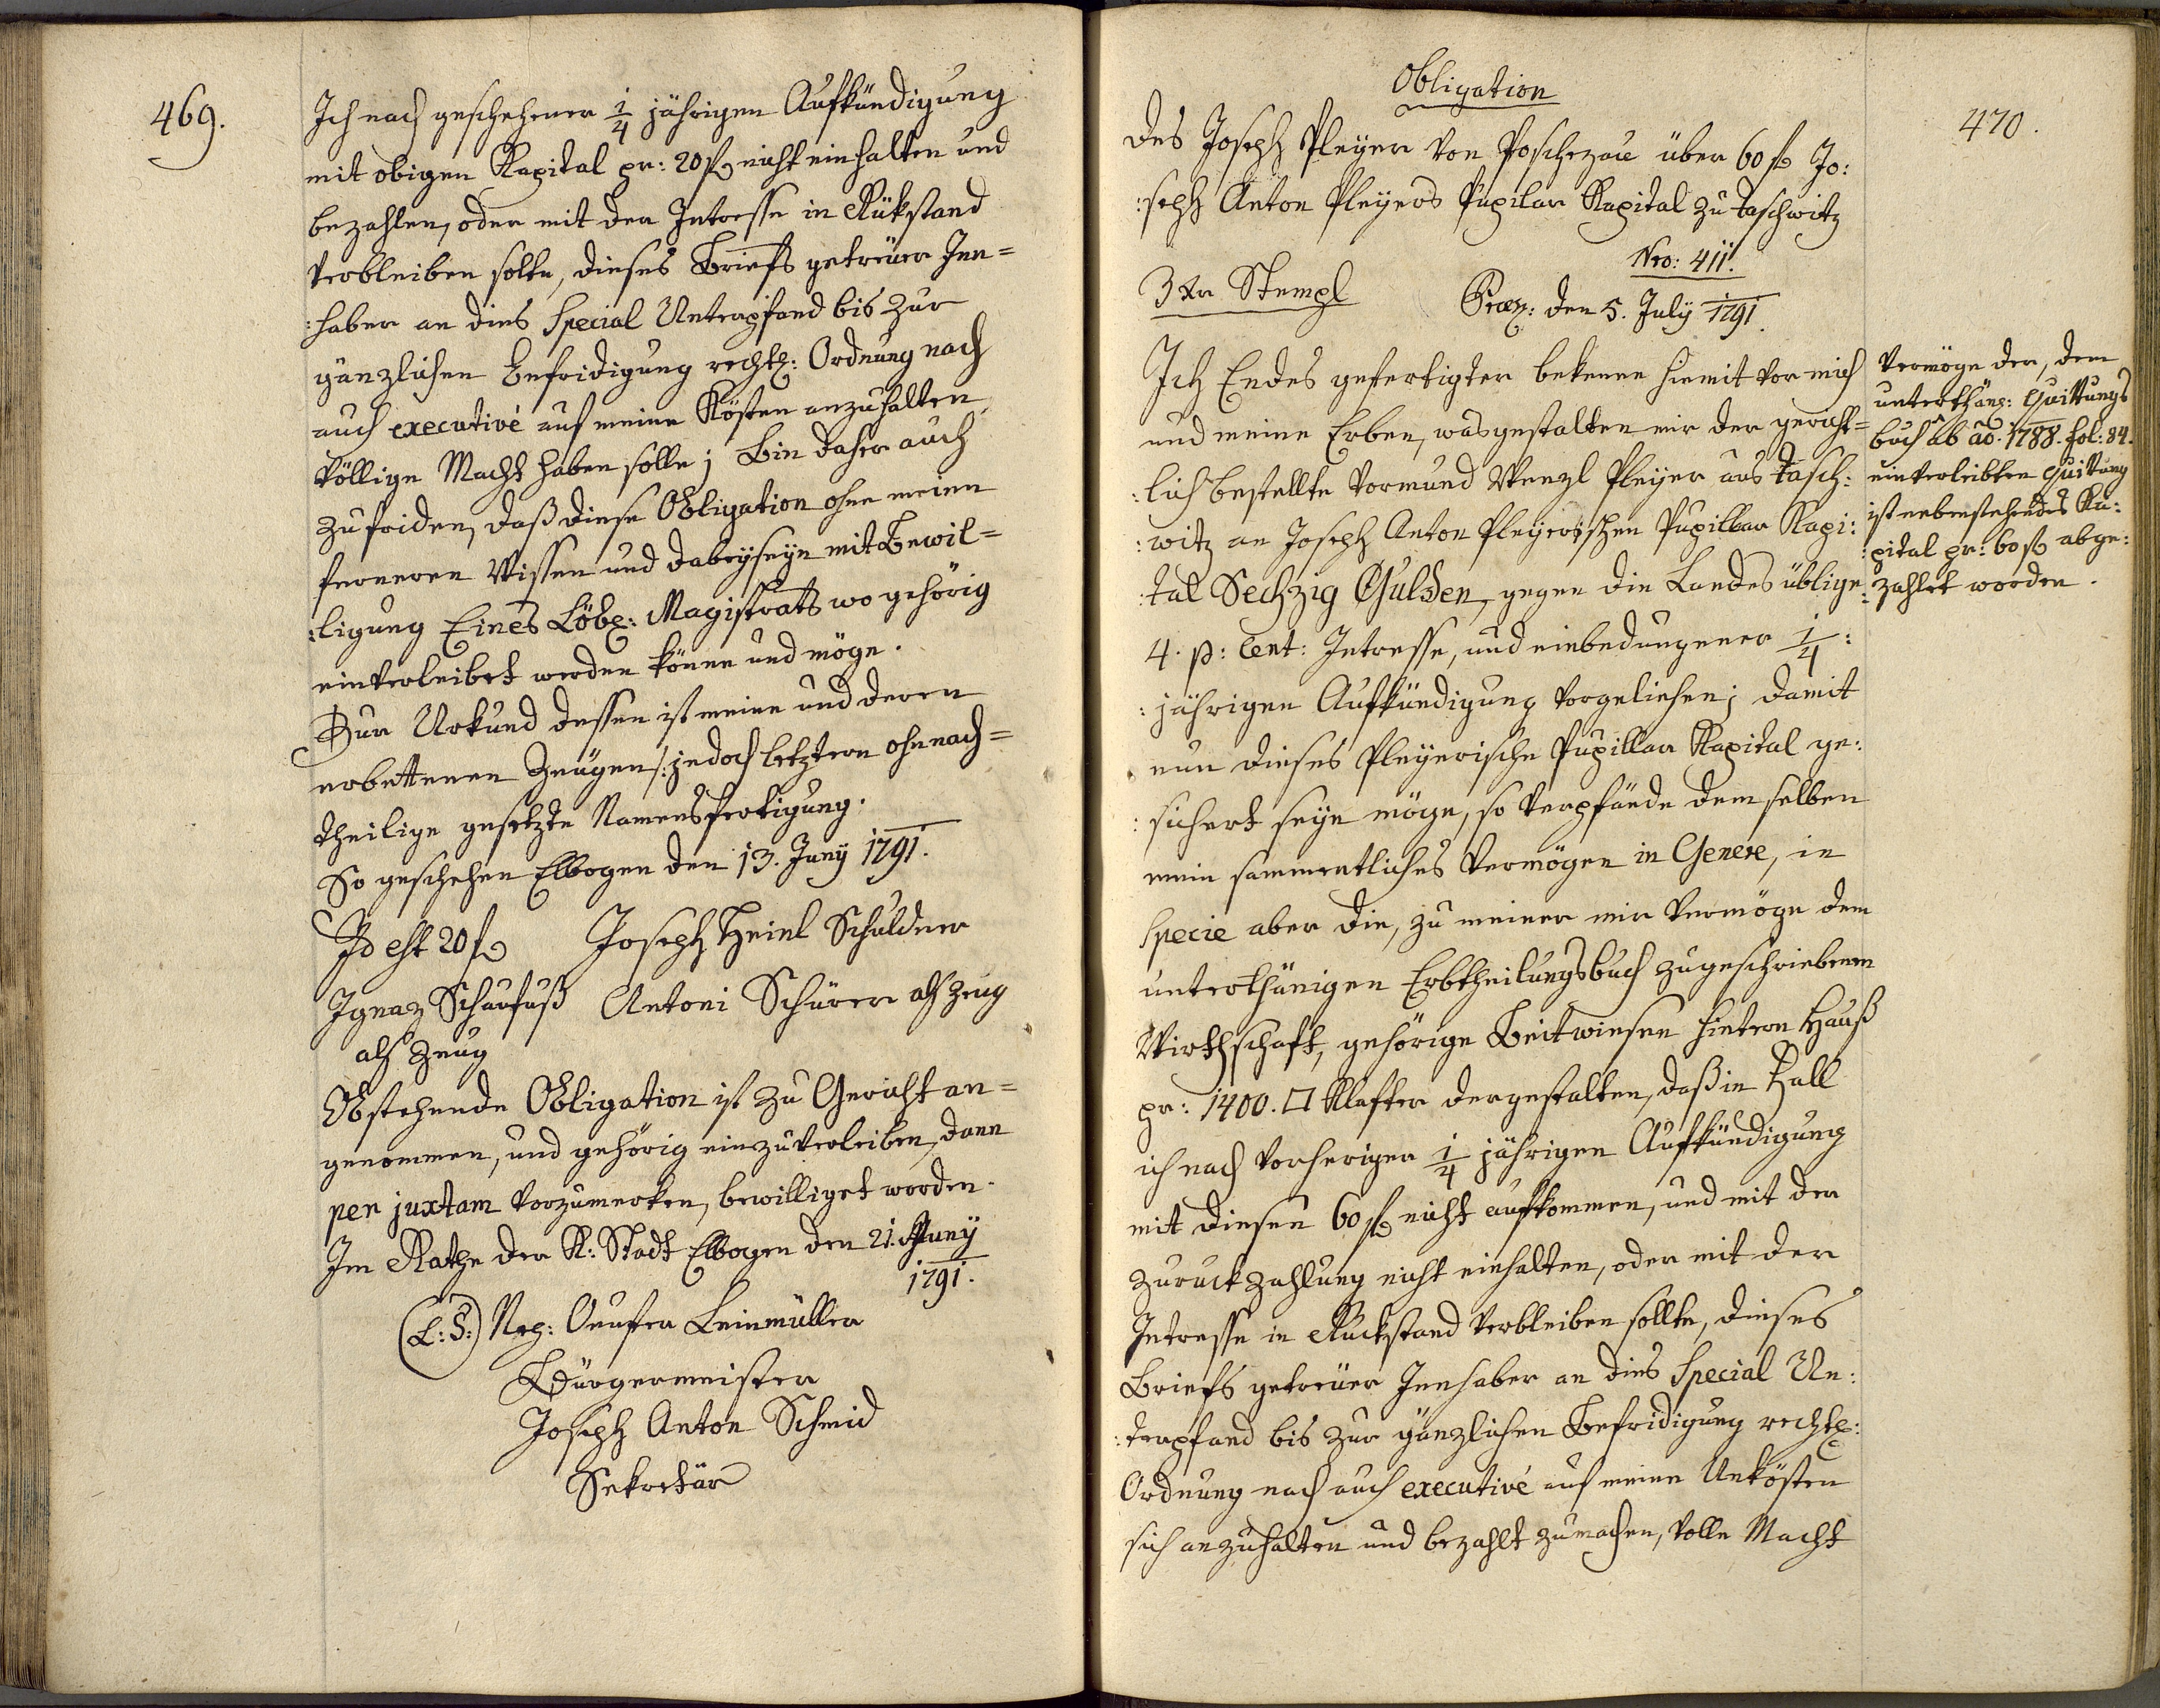 469.
Ich nach geschehener 1/4 jährigen Aufkündigung
mit obigen Kapital pr: 20 f nicht einhalten und
bezahlen, oder mit der Intresse in Rükstand
verbleiben solte, dieses Briefs getreuer Inn=
:haber an dies Special Unterpfand bis zur
gänzlichen Befridigung rechtl: Ordnung nach
auch executivè auf meine Kösten anzuhalten
völlige Macht haben solle; Bin daher auch
zufriden, daß diese Obligation ohne meinen
ferneren Wissen und dabeyseyn mit Bewil=
:ligung Eines Löbl: Magistrats wo gehörig
einverleibet werden könne und möge.
Zur Urkund dessen ist meine und deren
erbettenen Zeugen /: jedoch letztern ohnnach=
theilige gesetzte Namensfertigung.
So geschehen Elbogen den 13. Juny 1791.
Id est 20 f Joseph Heinl Schuldner
Ignaz Schaufuß Antoni Schürer als Zeug
als Zeug
Obstehende Obligation ist zu Gericht an=
genommen, und gehörig einzuverleiben, dann
per juxtam vorzumerken, bewilliget worden.
Im Rathe der K: Stadt Elbogen den 21. Juny
1791.
(L:S:) Nep: Onufer Leinmüller
Bürgermeister
Joseph Anton Schmid
Sekretär
470.
Obligation
des Joseph Pleyer von Poschezau über 60 f Jo:
:seph Anton Pleyers Pupilar Kapital zu Taschwitz
Nro: 411.
3 Xr Stempl Præs: den 5. July 1791.
Ich Endes gefertigter bekenne hiemit vor mich
und meine Erben, wasgestalten mir der gericht=
:lich bestellte Vormund Wenzl Pleyer aus Tasch:
:witz an Joseph Anton Pleyerischen Pupillar Kapi:
:tal Sechzig Gulden, gegen die Landes üblige
4. p: Cent: Intresse, und einbedungener 1/4:
:jährigen Aufkündigung vorgeliehen; damit
nun dieses Pleyerische Pupillar Kapital ge:
:sichert seyn möge, so verpfände dem selben
mein sammentliches Vermögen in Genere, in
Specie aber die, zu meiner mir vermöge dem
unterthänigen Erbtheilungsbuch zugeschriebenen
Wirthschaft, gehörige Beitwiesen hintern Hauß
pr: 1400. □ Klafter dergestalten, daß in Fall
ich nach vorheriger 1/4 jährigen Aufkündigung
mit diesen 60 f nicht aufkommen, und mit der
Zuruckzahlung nicht einhalten, oder mit der
Intresse in Ruckstand verbleiben sollte, dieses
Briefs getreuer Innhaber an dies Special Un:
:terpfand bis zur gänzlichen Befridigung rechtl:
Ordnung nach auch executivè auf meine Unkösten
sich anzuhalten und bezahlt zumachen, volle Macht
Vermöge der, dem
unterthäng: Quittungs
buch ab ao. 1788. fol: 84.
einverleibten Quittung
ist nebenstehendes Ka:
:pital pr: 60 f abge:
:zahlet worden.